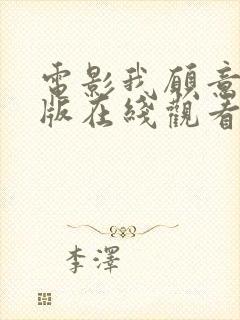 電影我願意
版在綫觀看
李澤